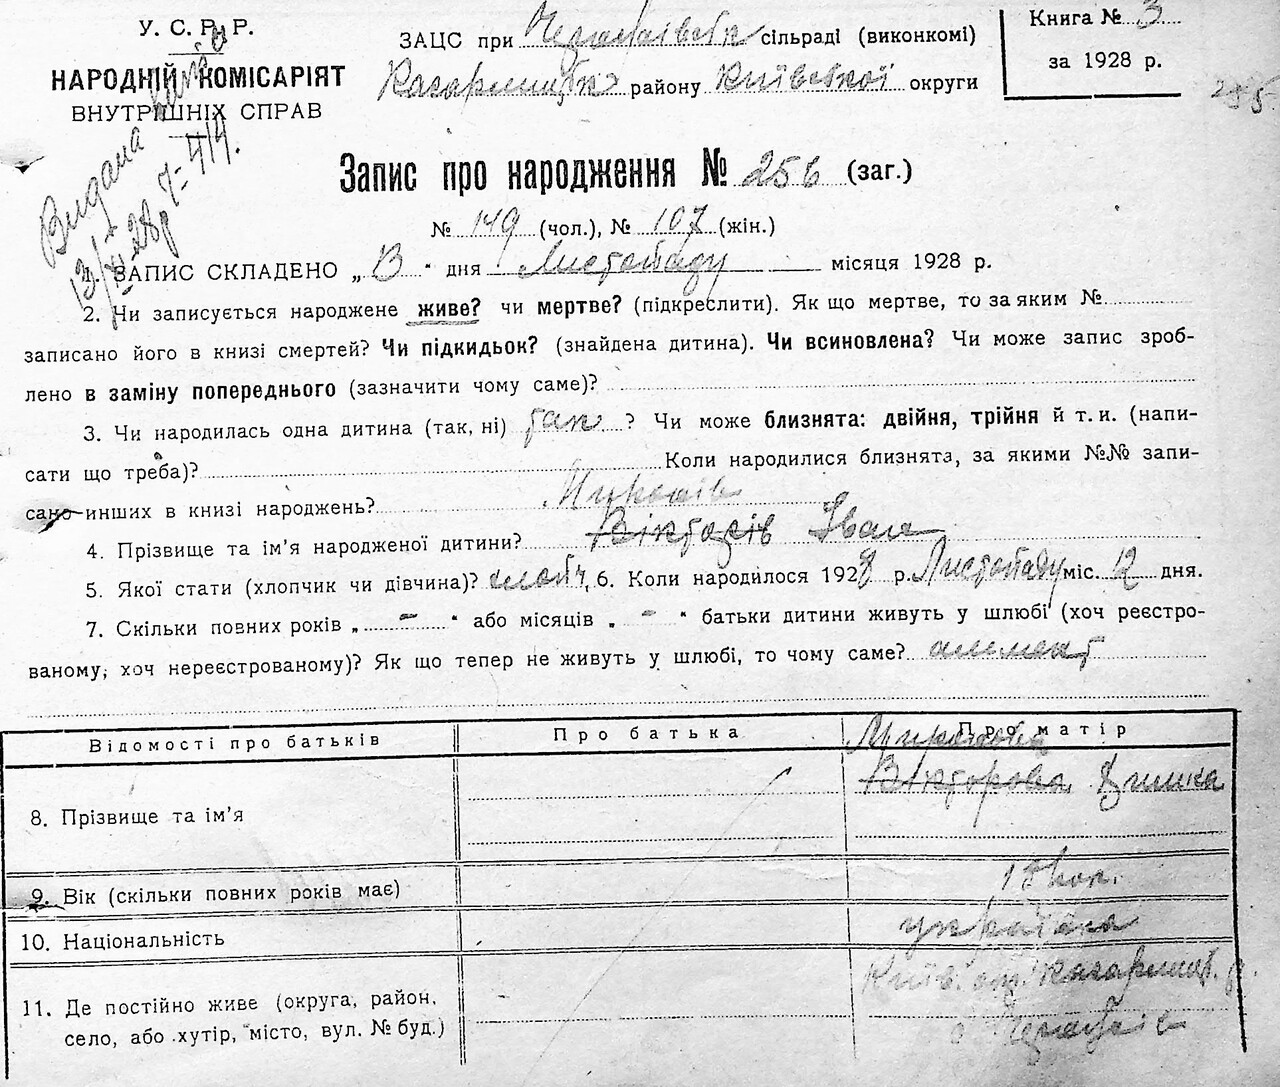 У. С. Р. Р.
НАРОДНІЙ КОМІСАРІЯТ
ВНУТРІШНІХ СПРАВ
ЗАЦС при сільраді (виконкомі)
Кагарлицьк району Київської округи
Книга № 3
за 1928 р.
Видана
Запис про народження № 256 (заг.)
№ 149 (чол.), № 107 (жін.)
ЗАПИС СКЛАДЕНО „ 13 “ дня Листопаду місяця 1928 р.
2. Чи записується народжене живе? чи мертве? (підкреслити). Як що мертве, то за яким №
записано його в книзі смертей? Чи підкидьок? (знайдена дитина). Чи всиновлена? Чи може запис зроб-
лено в заміну попереднього (зазначити чому саме)?
3. Чи народилась одна дитина (так, ні) так ? Чи може близнята: двійня, трійня й т. и. (напи-
сати що треба)? Коли народилися близнята, за якими №№ запи-
сано инших в книзі народжень?
4. Прізвище та ім’я народженої дитини? Вікторів Іван
5. Якої стати (хлопчик чи дівчина)? хлопч. 6. Коли народилося 1928 р. Листопаду міс. 12 дня.
7. Скільки повних років „ - “ або місяців „ - “ батьки дитини живуть у шлюбі (хоч реєстро-
ваному, хоч нереєстрованому)? Як що тепер не живуть у шлюбі, то чому саме? алемент
Відомості про батьків Про батька Про матір
8. Прізвище та ім’я Вікторова
9. Вік (скільки повних років має)
10. Національність українка
11. Де постійно живе (округа, район, Київ. ок. Кагарлиц. р.
село, або хутір, місто, вул. № буд.)